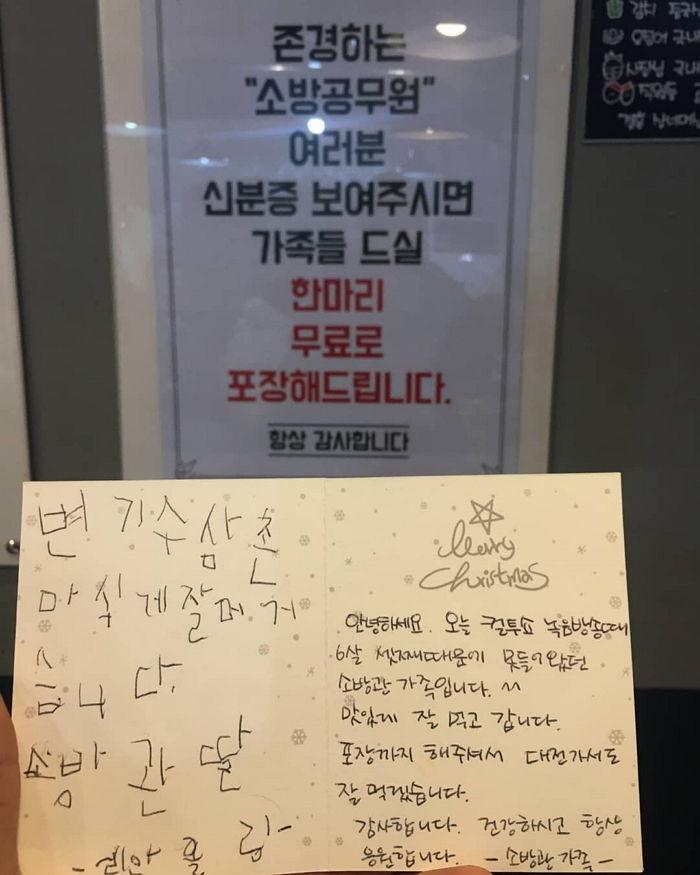 존경하는
"소방공무원"
여러분
신분증 보여주시면
가족들 드실
한마리
무료로
포장해드립니다.
항상 감사합니다
김치
오징어 국내
사장님 국내
변기수삼촌
마싰게잘머거
슴니다.
소방관딸
Merry
Christmas
안녕하세요. 오늘 컬투쇼 녹음방송때
6살 셋째때문에 못들어왔던
소방관 가족입니다. ^^
맛있게 잘 먹고 갑니다.
포장까지 해주셔서 대전가서도
잘 먹겠습니다.
감사합니다. 건강하시고 항상
응원합니다. - 소방관 가족 -